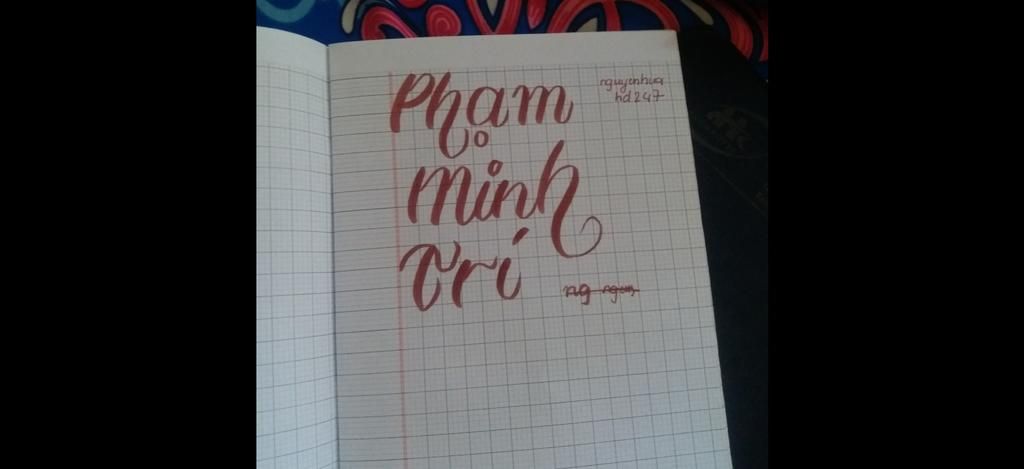 Phạm
nguyenhua
hd247
Minh
Trí
ng